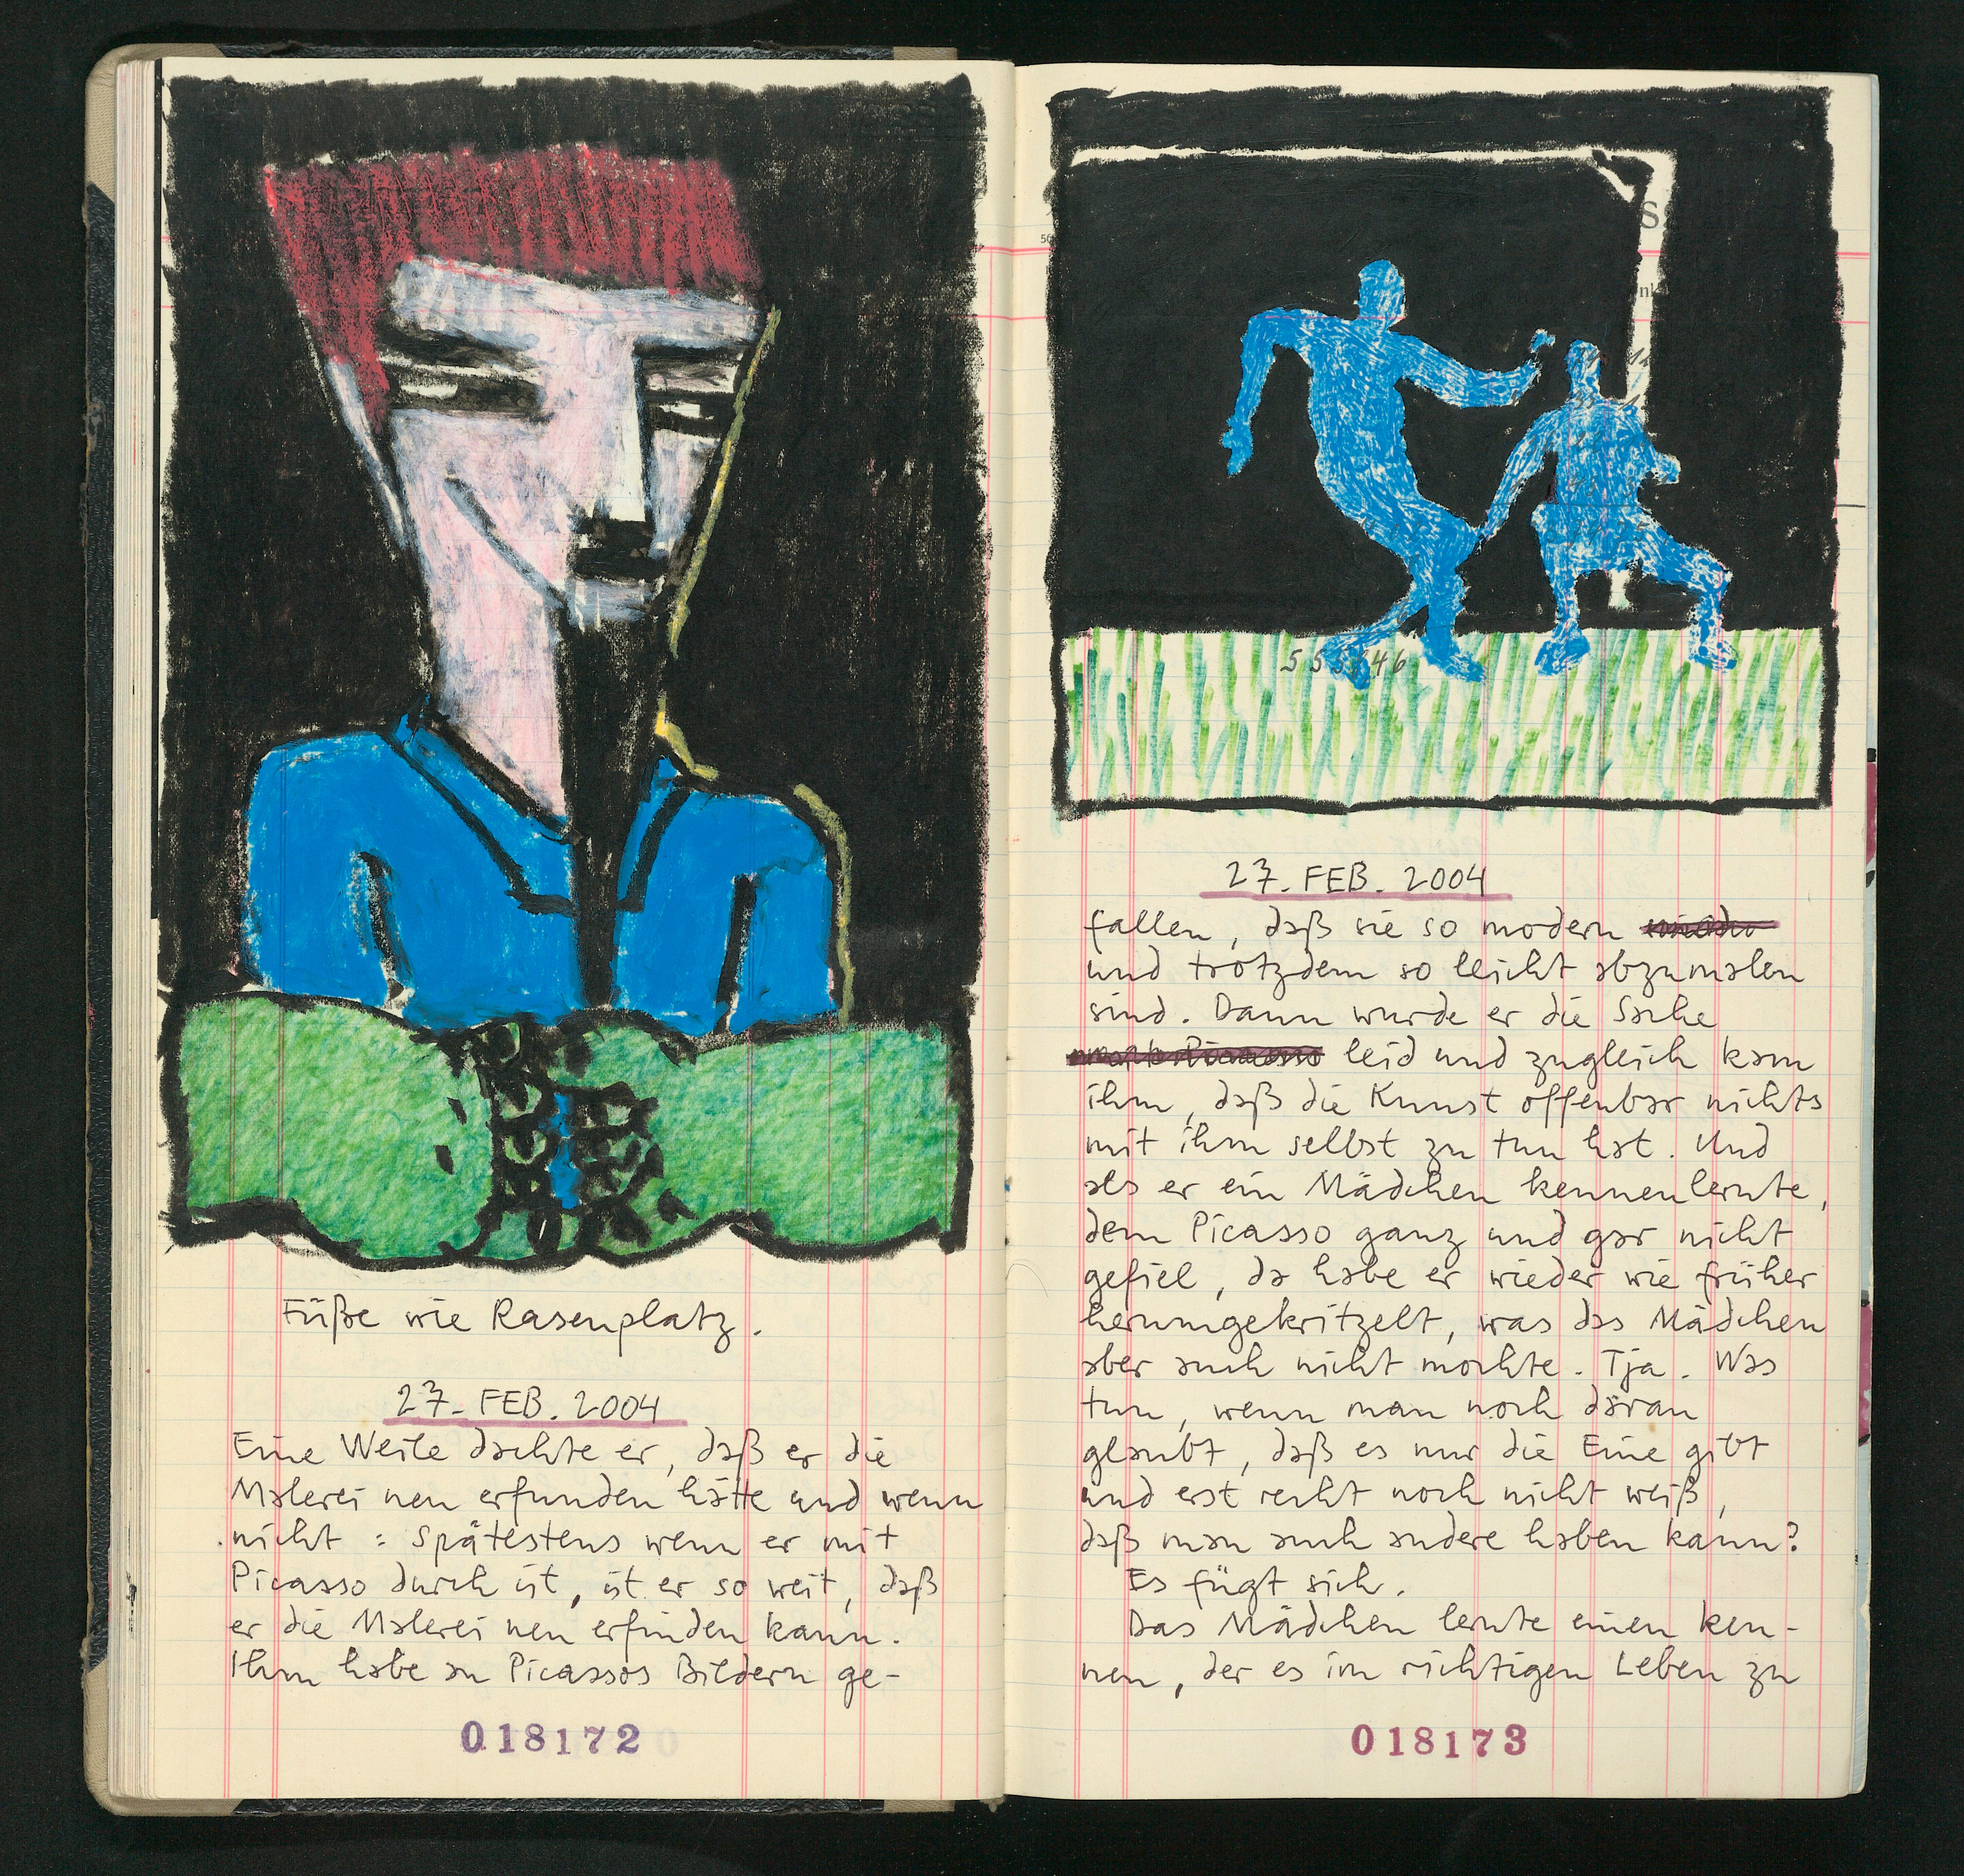 Füße wie Rasenplatz.
27. FEB. 2004
Eine Weile dachte er, daß er die
Malerei neu erfunden hätte und wenn
nicht : Spätestens wenn er mit
Picasso durch ist, ist er so weit, daß
er die Malerei neu erfinden kann.
Ihm habe an Picassos Bildern ge-
018172
555546
27. FEB. 2004
fallen, daß sie so modern
und trotzdem so leicht abzumalen
sind. Dann wurde er die Sache
leid und zugleich kam
ihm, daß die Kunst offenbar nichts
mit ihm selbst zu tun hat. Und
als er ein Mädchen kennenlernte,
dem Picasso ganz und gar nicht
gefiel, da habe er wieder wie früher
herumgekritzelt, was das Mädchen
aber auch nicht mochte. Tja. Was
tun, wenn man noch daran
glaubt, daß es nur die Eine gibt
und erst recht noch nicht weiß,
daß man auch andere haben kann?
Es fügt sich.
Das Mädchen lernte einen ken-
nen, der es im richtigen Leben zu
018173